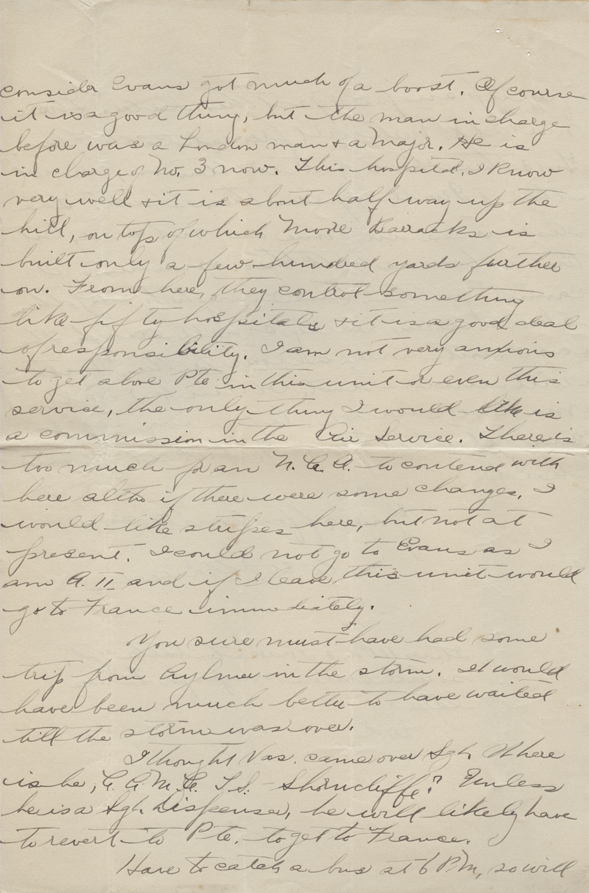 consider Evans got much of a boost. Of course
it is a good thing, but the man in charge
before was a London man & a Major. He is
in charge of No. 3 now. This hospital, I know
very well & it is about half way up the
hill, on top of which Moore Barracks is
built only a few hundred yards further
on. From here, they control something
like fifty hospitals & it is a good deal
of responsibility. I am not very anxious
to get above Pte in this unit or even this
service, the only thing I would like is
a commission in the Air Service. There is
too much of an N.C.O. to contend with
here altho if there were some changes, I
would like stripes here, but not at
present. I could not go to Evans as I
am A. II and if I leave this unit would
go to France immediately.
You sure must have had some
trip from Aylmer in the storm. It would
have been much better to have waited
till the storm was over.
I thought Vas. came over Sgt. Where
is he, C.A.M.C. T.S. - Shorncliffe? Unless
he is a Sgt. Dispenser, he will likely have
to revert to Pte. to get to France.
Have to catch a bus at 6 P.M, so will